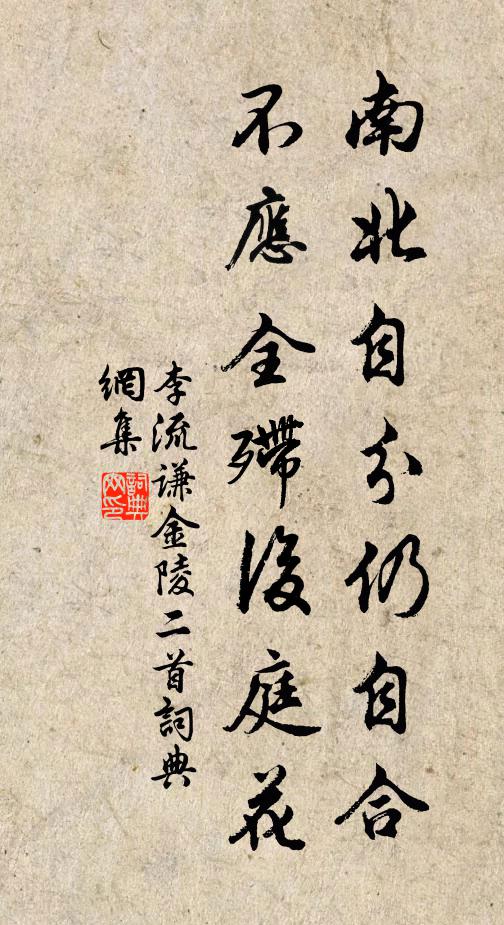 南北自分仍自合
不應全殢後庭花
李流谦金陵二首詞典
網集
詞典
网印